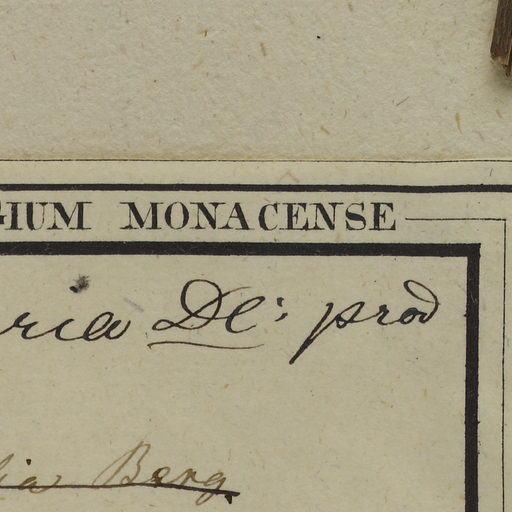 GIUM MONACENSE
ria DC: prod
lia Berg